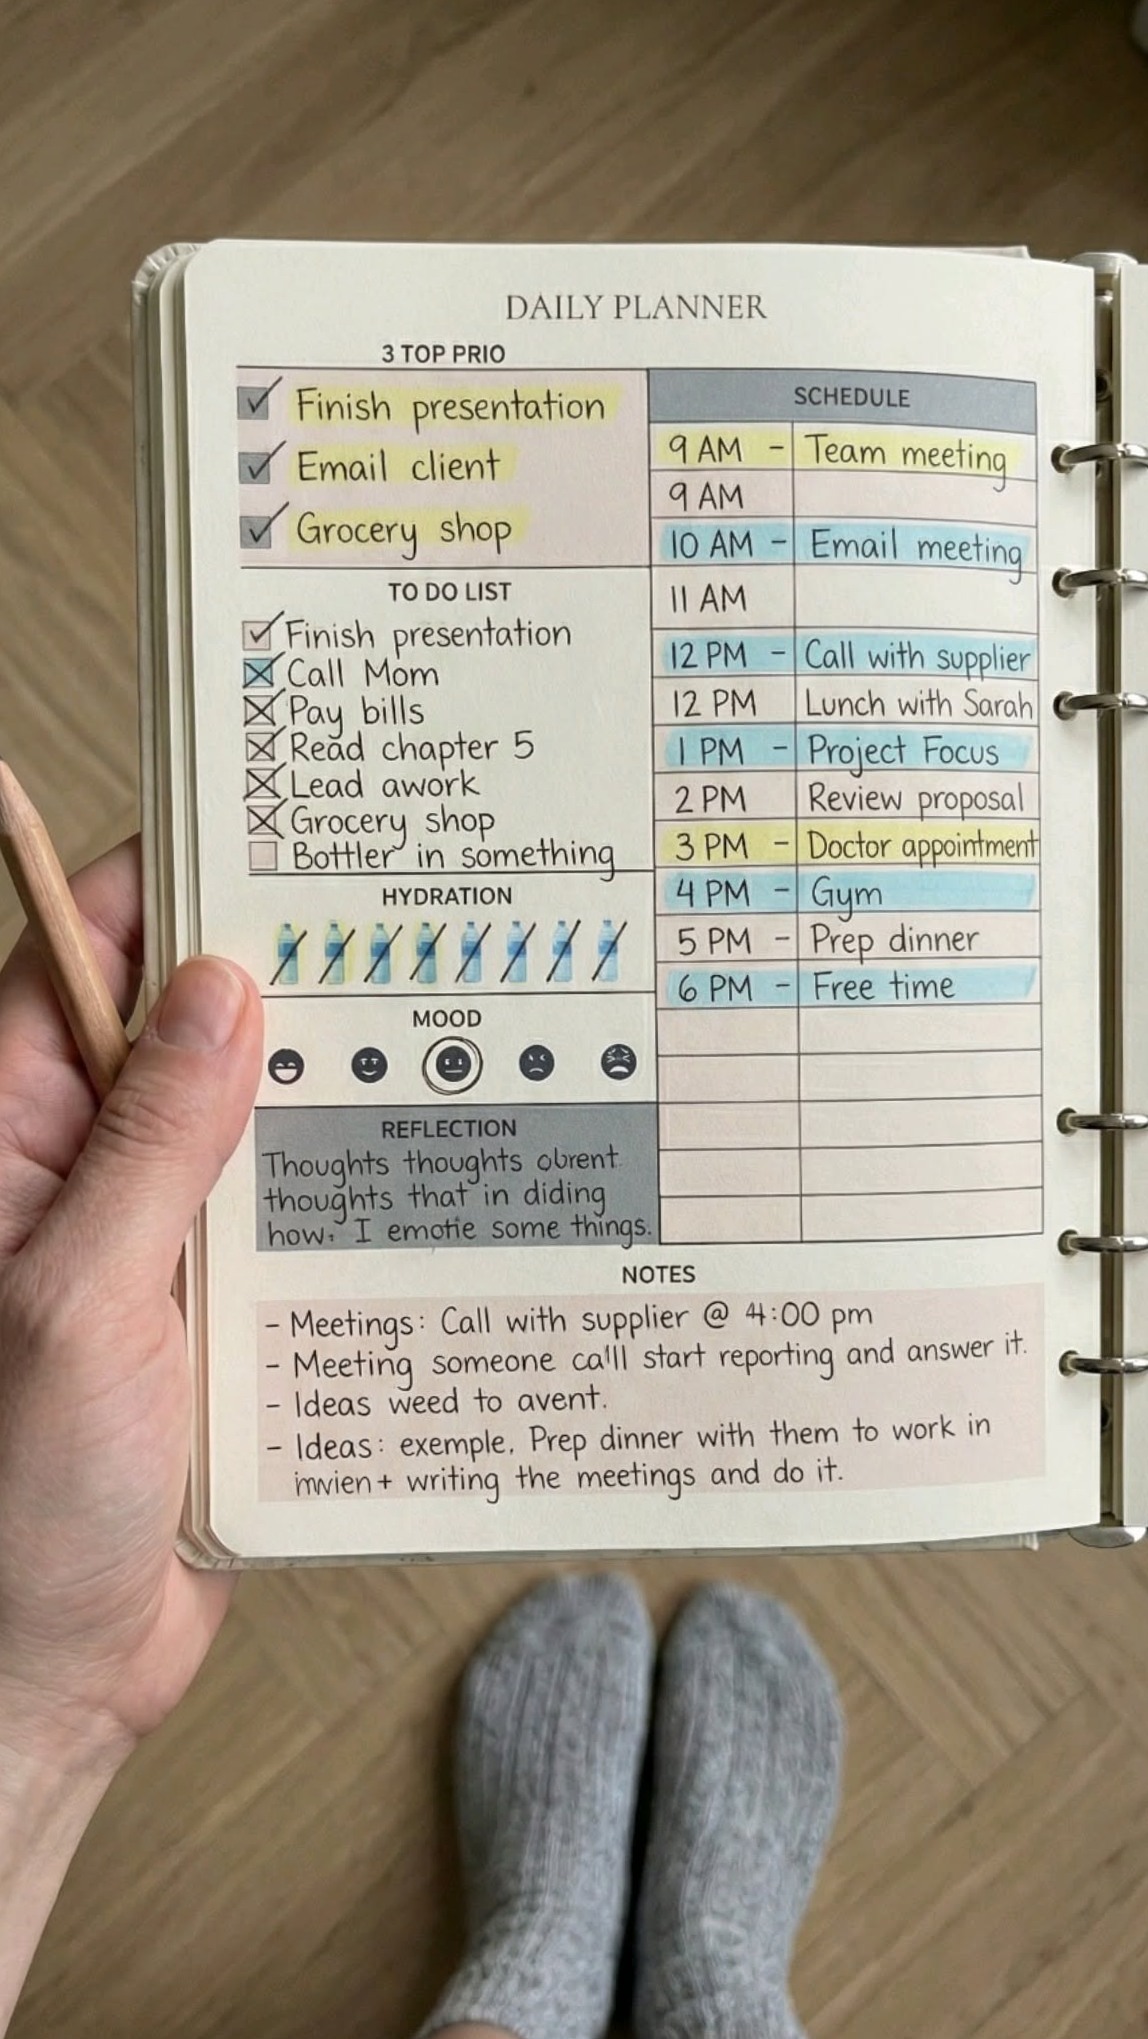 DAILY PLANNER
3 TOP PRIO
Finish presentation
Email client
Grocery shop
TO DO LIST
Finish presentation
Call Mom
Pay bills
Read chapter 5
Lead awork
Grocery shop
Bottler in something
HYDRATION
MOOD
REFLECTION
Thoughts thoughts obrent
thoughts that in diding
how. I emotie some things.
SCHEDULE
9 AM - Team meeting
9 AM
10 AM - Email meeting
11 AM
12 PM - Call with supplier
12 PM Lunch with Sarah
1 PM - Project Focus
2 PM Review proposal
3 PM - Doctor appointment
4 PM - Gym
5 PM - Prep dinner
6 PM - Free time
NOTES
- Meetings: Call with supplier @ 4:00 pm
- Meeting someone ca'll start reporting and answer it.
- Ideas weed to avent.
- Ideas: exemple. Prep dinner with them to work in
+ writing the meetings and do it.